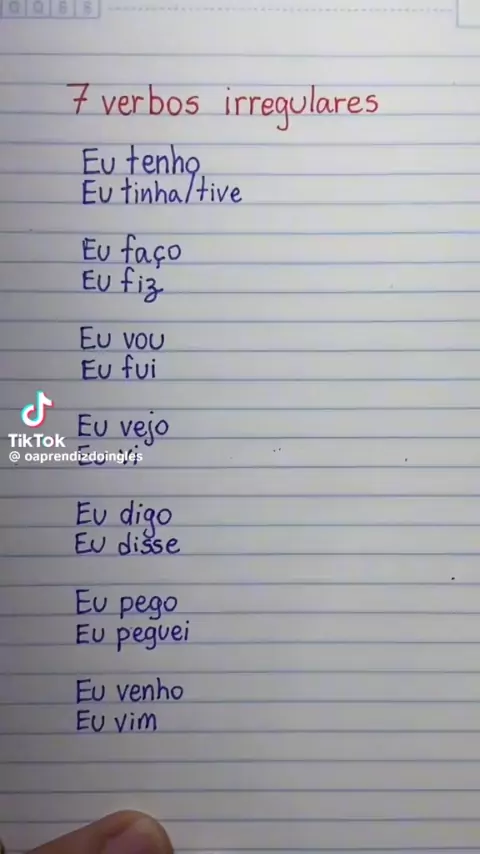 7 verbos irregulares
Eu tenho
Eu tinha/tive
Eu faço
Eu fiz
Eu vou
Eu fui
Eu vejo
TikTok
Eu vi
@ oaprendizdoingles
Eu digo
Eu disse
Eu pego
Eu peguei
Eu venho
Eu vim